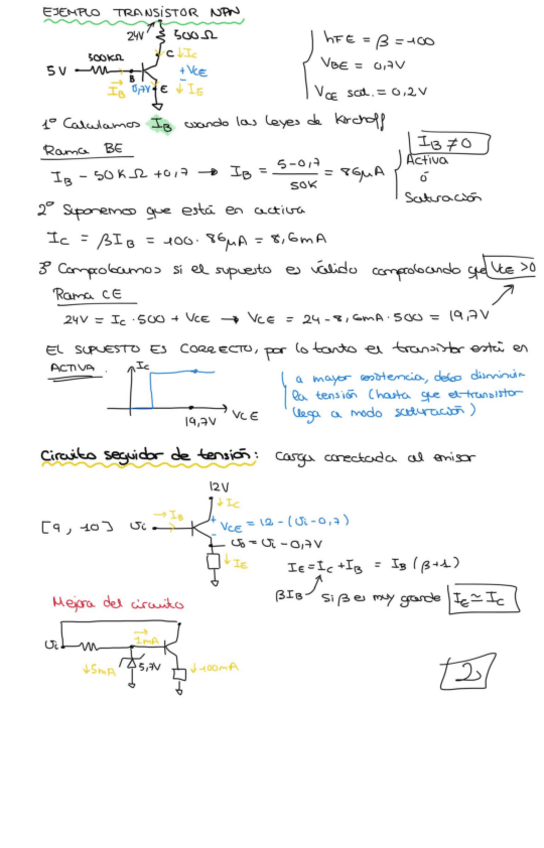 EJEMPLO TRANSISTOR NPN
24V
500Ω
500KΩ
C ↓Ic
5V
B
+VCE
-
IB 0,7V E ↓IE
hFE = β = 100
VBE = 0,7V
VCE sat. = 0,2V
1º Calculamos IB usando las leyes de Kirchoff
Rama BE
IB - 50KΩ + 0,7 → IB = 5-0,7 / 50K = 86μA
IB ≠ 0
Activa
ó
Saturación
2º Suponemos que está en activa
Ic = βIB = 100 · 86μA = 8,6mA
3º Comprobamos si el supuesto es válido comprobando que VCE > 0
Rama CE
24V = Ic · 500 + VCE → VCE = 24 - 8,6mA · 500 = 19,7V
EL SUPUESTO ES CORRECTO, por lo tanto el transistor está en
ACTIVA.
Ic
19,7V
VCE
a mayor resistencia, debo disminuir
la tensión (hasta que el transistor
llega a modo saturación)
Circuito seguidor de tensión: Carga conectada al emisor
12V
↓Ic
[9, 10] Vi
→IB
+
VCE = 12 - (Vi - 0,7)
-
Vo = Vi - 0,7V
↓IE
IE = Ic + IB = IB (β+1)
βIB
si β es muy grande IE ≃ Ic
Mejora del circuito
Vi
1mA
↓5mA
5,7V
↓100mA
2